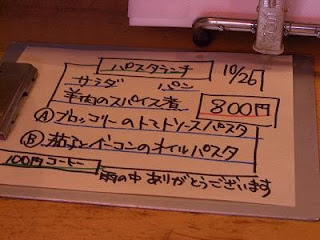 パスタランチ 10/26
サラダ パン
羊肉のスパイス煮 800円
Ⓐ ブロッコリーのトマトソースパスタ
Ⓑ 茄子とベーコンのオイルパスタ
100円コーヒー
雨の中ありがとうございます